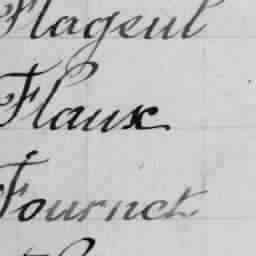 Flageul
Flaux
Fournet